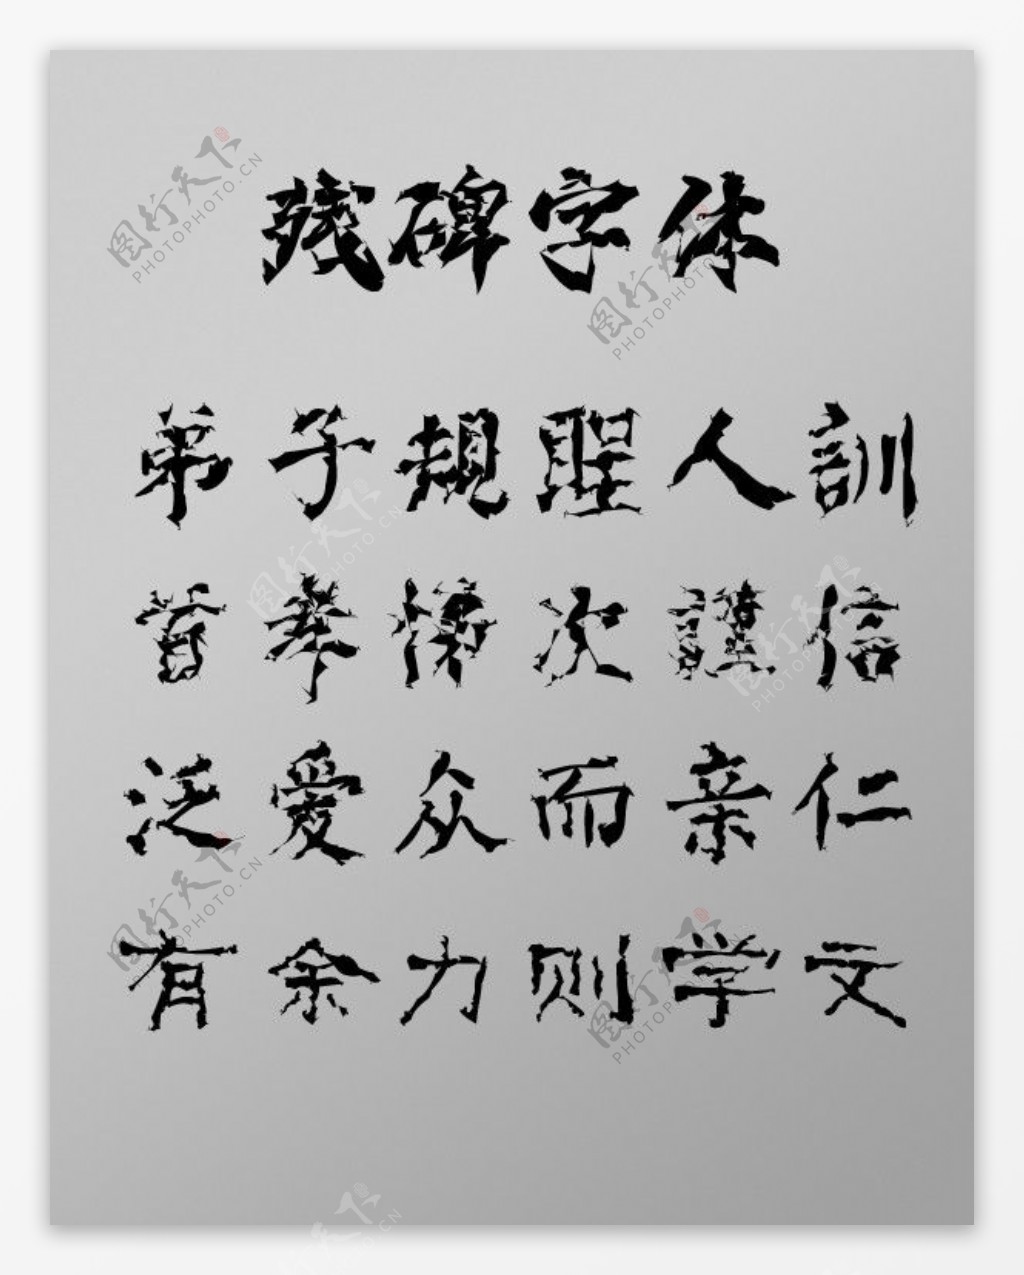 图行天下
PHOTOPHOTO.CN
残碑字体
图行天下
PHOTOPHOTO.CN
弟子規聖人訓
图行天下
PHOTOPHOTO.CN
首孝悌次謹信
图行天下
PHOTOPHOTO.CN
泛愛众而亲仁
图行天下
PHOTOPHOTO.CN
有余力则学文
图行天下
PHOTOPHOTO.CN